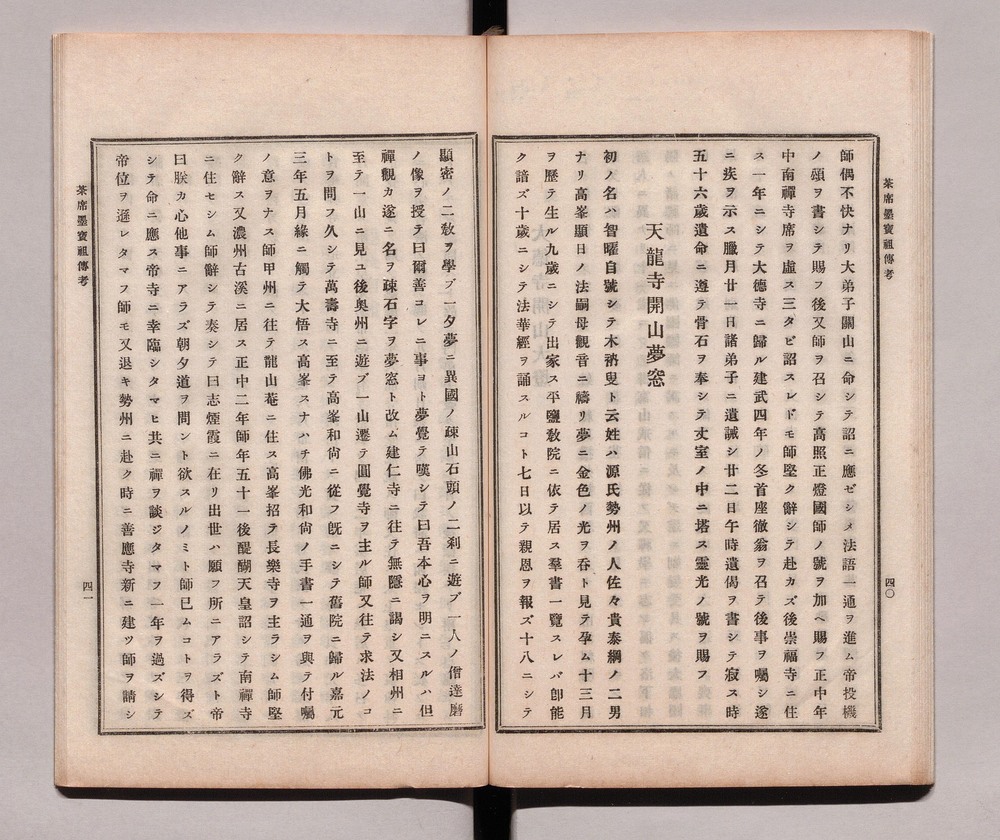 茶席墨寳祖傳考
四〇
師偶不快ナリ大弟子關山ニ命シテ詔ニ應ゼシメ法語一通ヲ進ム帝投機
ノ頌ヲ書シテ賜フ後又師ヲ召シテ高照正燈國師ノ號ヲ加ヘ賜フ正中年
中南禪寺席ヲ虛ス三タビ詔スレドモ師堅ク辭シテ赴カズ後崇福寺ニ住
ス一年ニシテ大德寺ニ歸ル建武四年ノ冬首座徹翁ヲ召テ後事ヲ囑シ遂
ニ疾ヲ示ス臘月廿一日諸弟子ニ遺誡シ廿二日午時遺偈ヲ書シテ寂ス時
五十六歲遺命ニ遵テ骨石ヲ奉シテ丈室ノ中ニ塔ス靈光ノ號ヲ賜フ
天龍寺開山夢窓
初ノ名ハ智曜自號シテ木訥叟ト云姓ハ源氏勢州ノ人佐々貴泰綱ノ二男
ナリ高峯顯日ノ法嗣母觀音ニ禱リ夢ニ金色ノ光ヲ呑ト見テ孕ム十三月
ヲ歷テ生ル九歲ニシテ出家ス平鹽敎院ニ依テ居ス羣書一覽スレバ卽能
ク諳ズ十歲ニシテ法華經ヲ誦スルコト七日以テ親恩ヲ報ズ十八ニシテ
顯密ノ二敎ヲ學ブ一夕夢ニ異國ノ疎山石頭ノ二刹ニ遊ブ一人ノ僧達磨
ノ像ヲ授テ曰爾善コレニ事ヨト夢覺テ嘆シテ曰吾本心ヲ明ニスルハ但
禪觀カ遂ニ名ヲ疎石字ヲ夢窓ト改ム建仁寺ニ往テ無隱ニ謁シ又相州ニ
至テ一山ニ見ユ後奥州ニ遊ブ一山遷テ圓覺寺ヲ主ル師又往テ求法ノコ
トヲ問フ久シテ萬壽寺ニ至テ高峯和尙ニ從フ旣ニシテ舊院ニ歸ル嘉元
三年五月緣ニ觸テ大悟ス高峯スナハチ佛光和尙ノ手書一通ヲ與テ付囑
ノ意ヲナス師甲州ニ往テ龍山菴ニ住ス高峯招テ長樂寺ヲ主ラシム師堅
ク辭ス又濃州古溪ニ居ス正中二年師年五十一後醍醐天皇詔シテ南禪寺
ニ住セシム師辭シテ奏シテ曰志煙霞ニ在リ出世ハ願フ所ニアラズト帝
曰朕カ心他事ニアラズ朝夕道ヲ問ント欲スルノミト師已ムコトヲ得ズ
シテ命ニ應ス帝寺ニ幸臨シタマヒ共ニ禪ヲ談ジタマフ一年ヲ過ズシテ
帝位ヲ遜レタマフ師モ又退キ勢州ニ赴ク時ニ善應寺新ニ建ツ師ヲ請シ
茶席墨寳祖傳考
四一